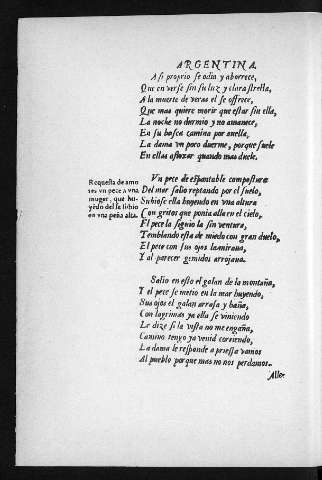 ARGENTINA
A si proprio se odia y aborrece,
Que en verse sin su luz y clara strella,
A la muerte de veras el se offrece,
Que mas quiere morir que estar sin ella,
La noche no durmio y no amanece,
En su busca camina por auella,
La dama vn poco duerme, porque suele
En ellas afloxar quando mas duele.
Requesta de amores vn pece a vna
muger, que huyēdo del se subio
en vna peña alta.
Vn pece de espantable compostura
Del mar salio reptando por el suelo,
Subiose ella huyendo en vna altura
Con gritos que ponia alla en el cielo,
El pece la siguio la sin ventura,
Temblando esta de miedo con gran duelo,
El pece con sus ojos la miraua,
Y al parecer gemidos arrojaua.
Salio en esto el galan de la montaña,
Y el pece se metio en la mar huyendo,
Sus ojos el galan arrasa y baña,
Con lagrimas ya ella se viniendo
Le dize si la vista no me engaña,
Camino tengo ya venid corriendo,
La dama le responde a priessa vamos
Al pueblo porque mas no nos perdamos.
Alle-